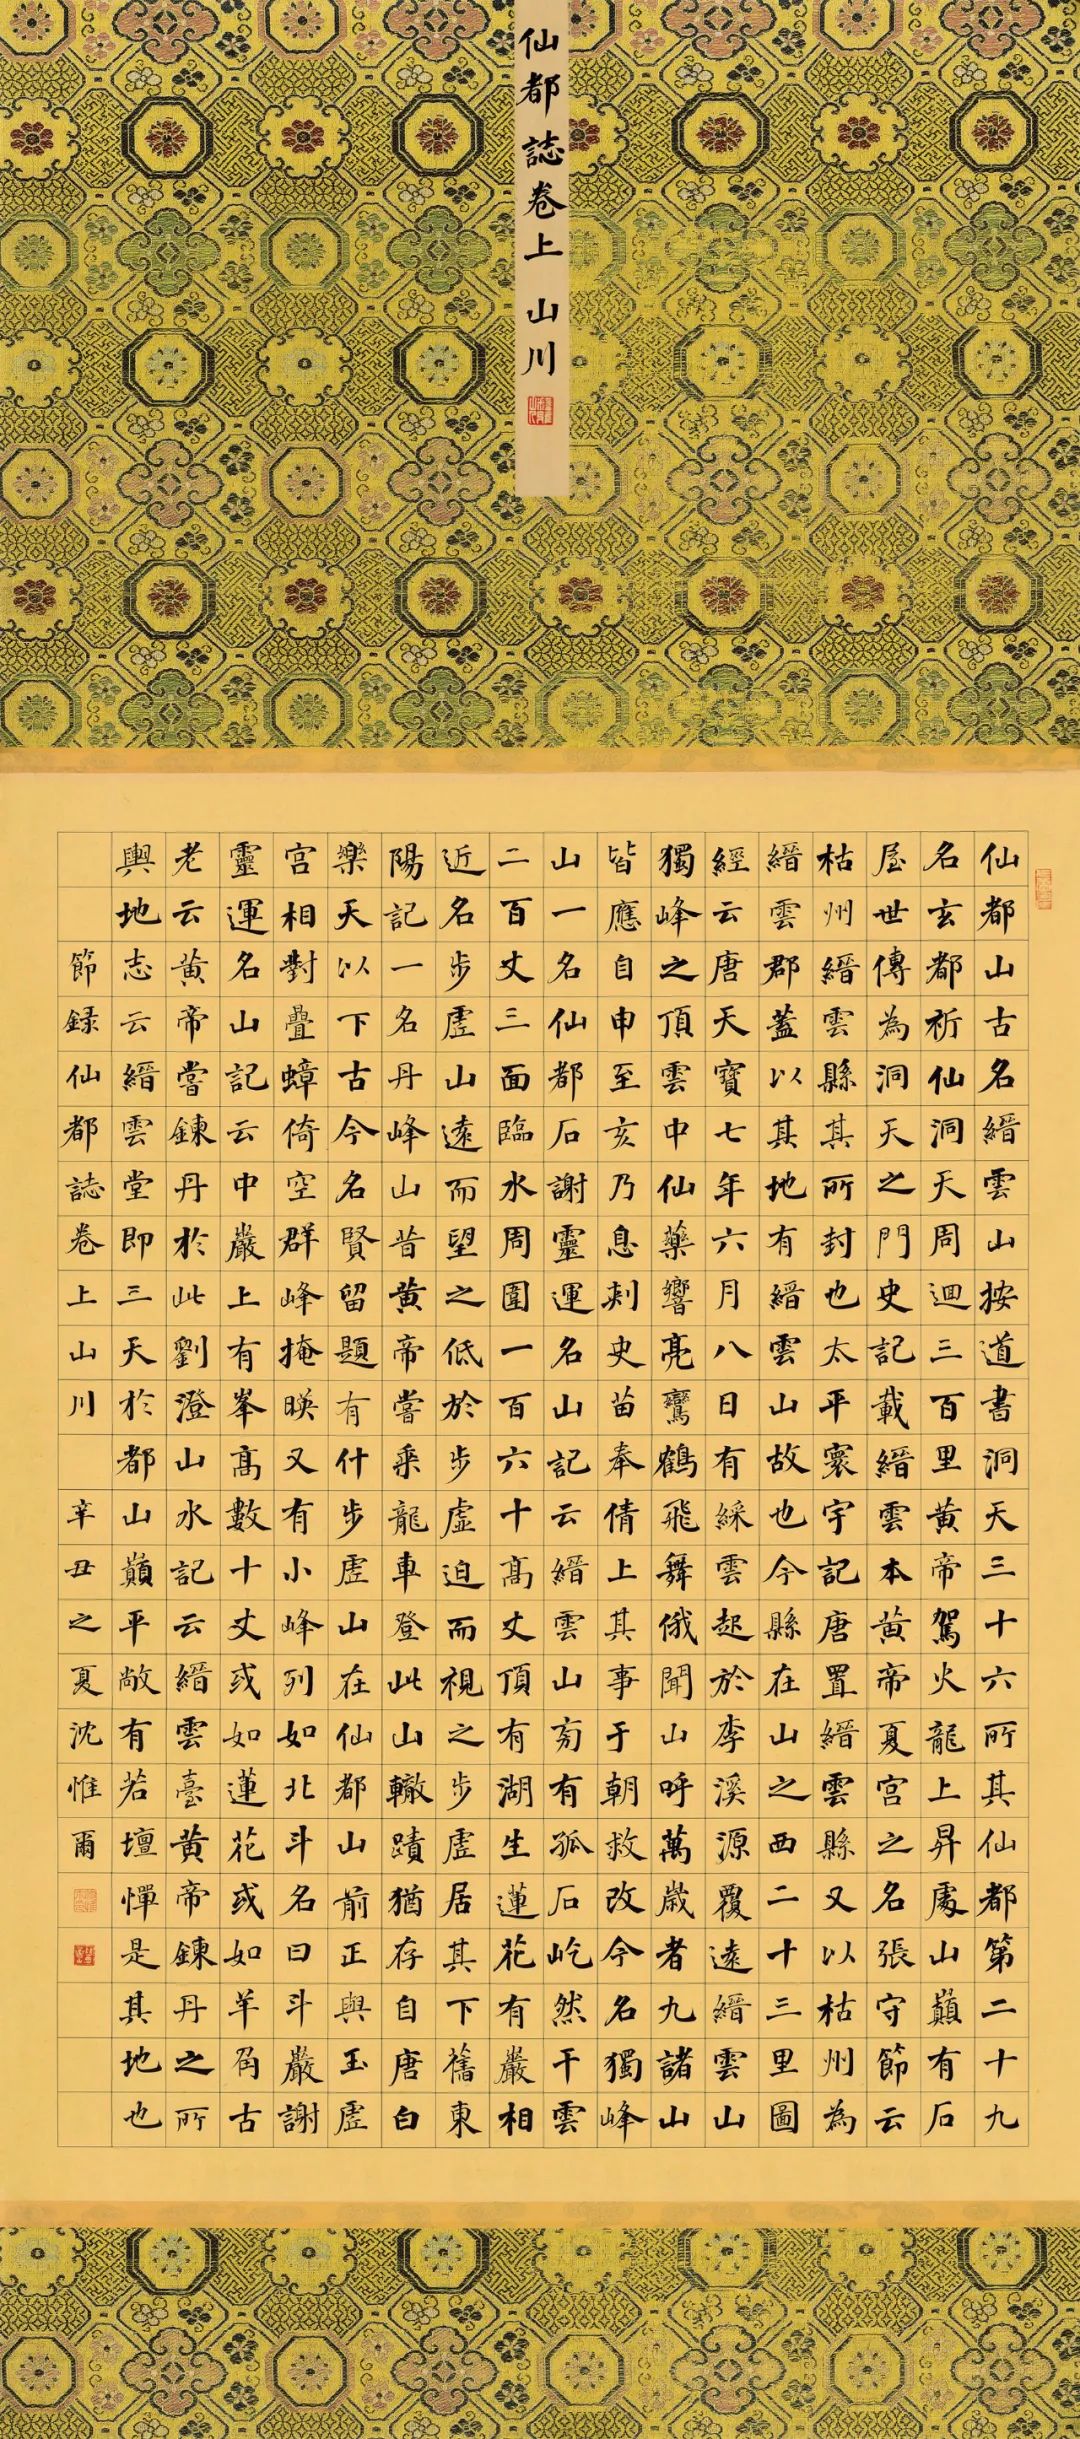 仙都誌卷上 山川
仙都山古名縉雲山按道書洞天三十六所其仙都第二十九
名玄都祈仙洞天周迴三百里黃帝駕火龍上昇處山巔有石
屋世傳為洞天之門史記載縉雲本黃帝夏宮之名張守節云
枯州縉雲縣其所封也太平寰宇記唐置縉雲縣又以枯州為
縉雲郡蓋以其地有縉雲山故也今縣在山之西二十三里圖
經云唐天寶七年六月八日有綵雲起於李溪源覆遠縉雲山
獨峰之頂雲中仙藥響亮鸞鶴飛舞俄聞山呼萬歲者九諸山
皆應自申至亥乃息刺史苗奉倩上其事于朝敕改今名獨峰
山一名仙都石謝靈運名山記云縉雲山旁有孤石屹然干雲
二百丈三面臨水周圍一百六十高丈頂有湖生蓮花有巖相
近名步虛山遠而望之低於步虛迫而視之步虛居其下舊東
陽記一名丹峰山昔黃帝嘗乘龍車登此山轍蹟猶存自唐白
樂天以下古今名賢留題有什步虛山在仙都山前正與玉虛
宮相對疊蟑倚空群峰掩暎又有小峰列如北斗名曰斗巖謝
靈運名山記云中巖上有峯高數十丈或如蓮花或如羊角古
老云黃帝嘗鍊丹於此劉澄山水記云縉雲臺黃帝鍊丹之所
輿地志云縉雲堂即三天於都山巔平敞有若壇憚是其地也
節錄仙都誌卷上山川 辛丑之夏沈惟爾